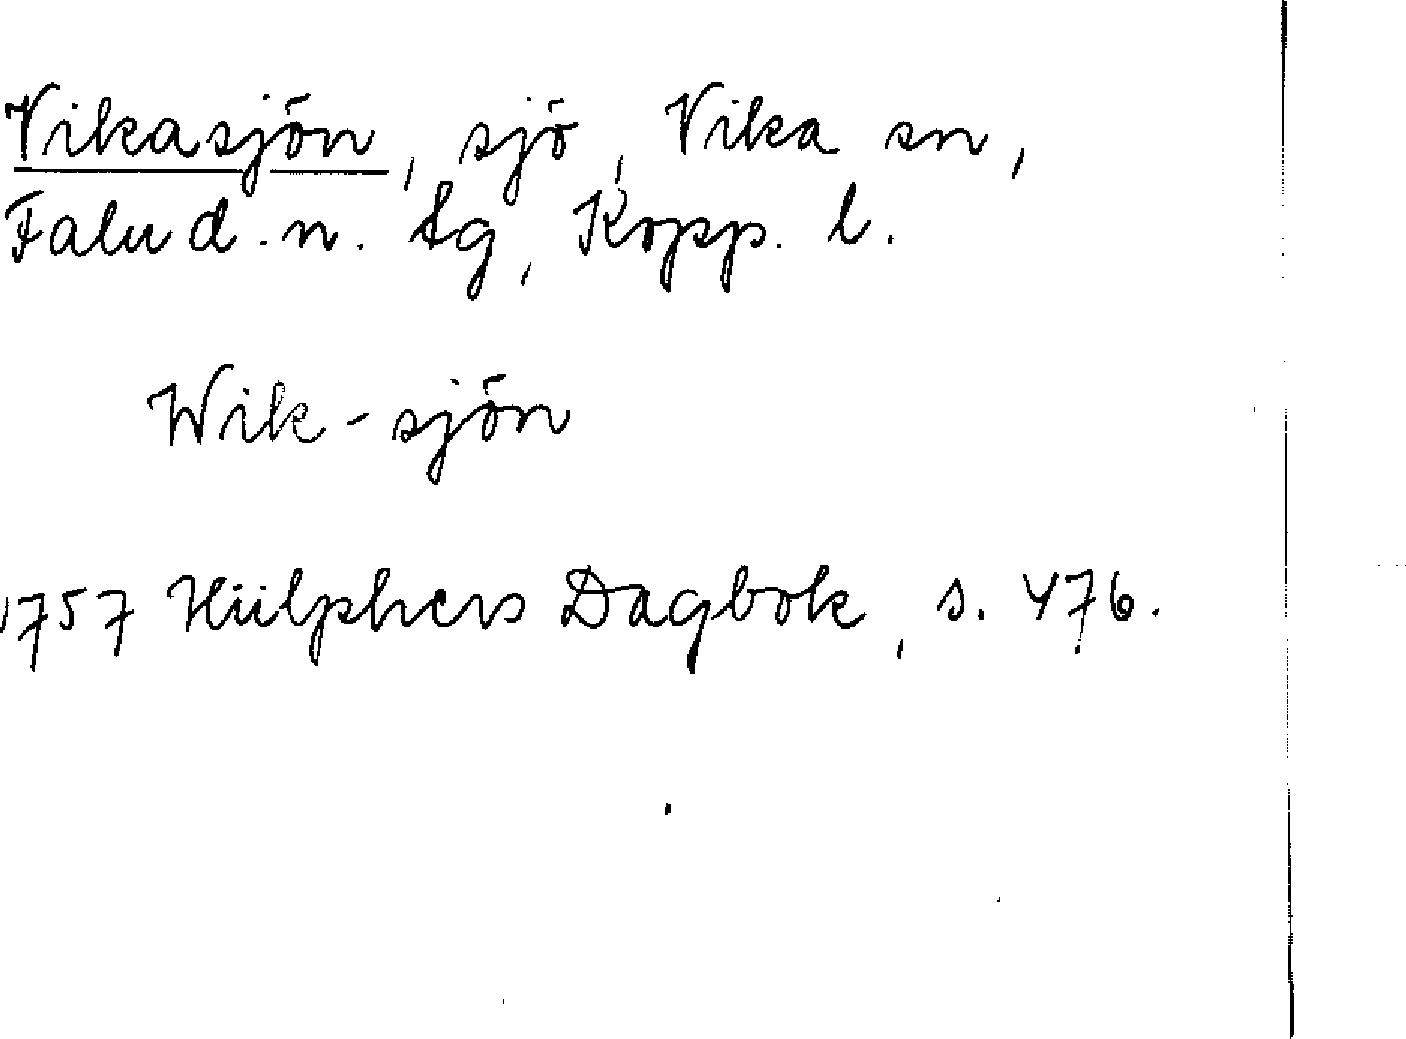 Vikasjön, sjö, Vika sn,
Falu d. n. tg, Kopp. l.
Wik-sjön
1757 Hülphers Dagbok, s. 476.